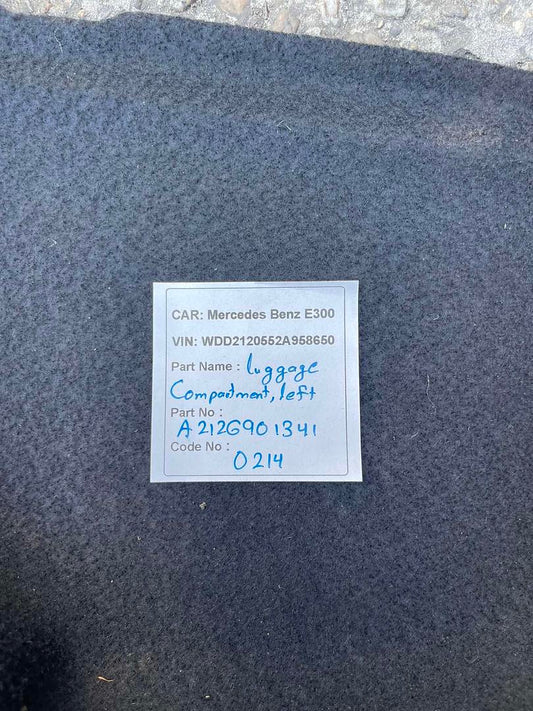 CAR: Mercedes Benz E300
VIN: WDD2120552A958650
Part Name : luggage
Compartment, left
Part No :
A2126901341
Code No :
0214